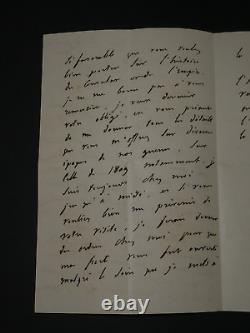 si favorable que vous voulez
bien porter sur l'histoire
du Consulat et de l'Empire.
je ne me borne pas à vous
remercier, je veux demeurer
votre obligé, en vous priant
de me donner tous les détails
que vous m'offrez sur diverses
époques de nos guerres, sur
celle de 1809 notamment. je
suis toujours chez moi
jusqu'à midi, et si vous
voulez bien me prévenir de
votre visite, je ferai donner
des ordres chez moi pour que
ma porte vous soit ouverte
malgré le soin que je mets à